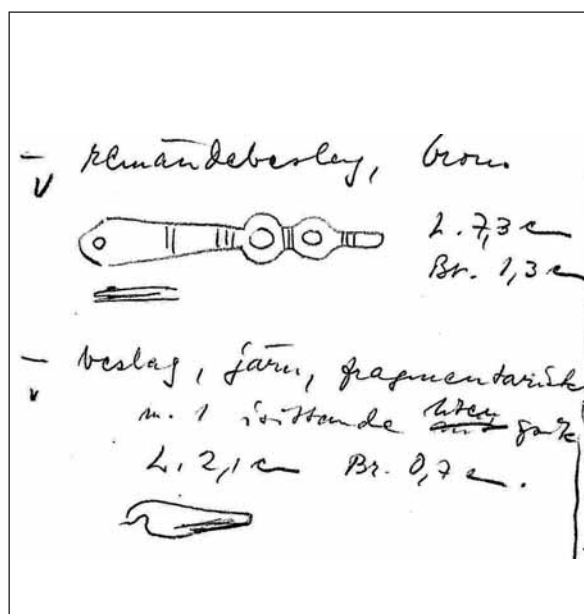 – remändebeslag, brons
v
L. 7,3 cm
Br. 1,3 cm
– beslag, järn, fragmentarisk
v
m. 1 isittande liten
L. 2,1 cm Br. 0,7 cm.